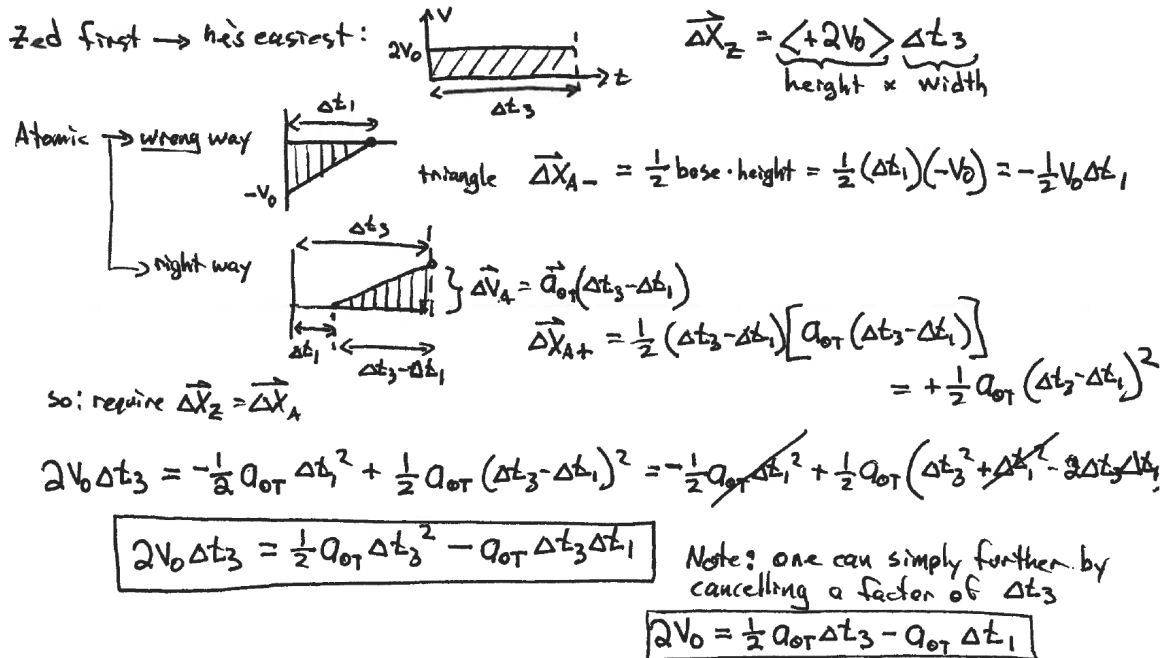 Zed first → he's easiest:
V
2V₀
t
Δt₃
ΔX⃗_Z = <+2V₀> Δt₃
height × width
Atomic → wrong way
Δt₁
-V₀
triangle ΔX⃗_A- = 1/2 base·height = 1/2 (Δt₁)(-V₀) = -1/2 V₀Δt₁
→ right way
Δt₃
Δt₁
Δt₃-Δt₁
} ΔV⃗_A = a⃗_OT(Δt₃-Δt₁)
ΔX⃗_A+ = 1/2 (Δt₃-Δt₁)[a_OT (Δt₃-Δt₁)]
= +1/2 a_OT (Δt₃-Δt₁)²
so: require ΔX⃗_Z = ΔX⃗_A
2V₀Δt₃ = -1/2 a_OT Δt₁² + 1/2 a_OT (Δt₃-Δt₁)² = -1/2 a_OT Δt₁² + 1/2 a_OT (Δt₃² + Δt₁² - 2Δt₃Δt₁
2V₀Δt₃ = 1/2 a_OT Δt₃² - a_OT Δt₃Δt₁
Note: one can simply further by
cancelling a factor of Δt₃
2V₀ = 1/2 a_OT Δt₃ - a_OT Δt₁